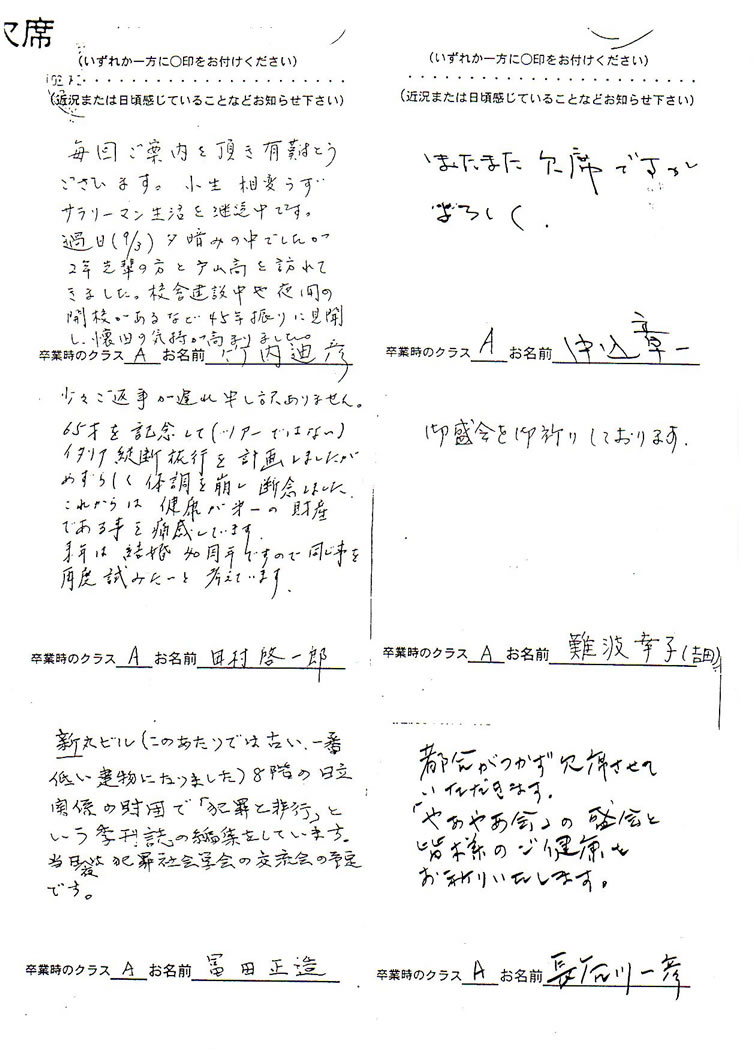 欠席
(いずれか一方に〇印をお付けください)
(近況または日頃感じていることなどお知らせ下さい)
毎回ご案内を頂き有難とう
ございます。小生 相変らず
サラリーマン生活を継続中です。
過日(9/3)夕暗みの中でしたが
2年先輩の方と戸山高を訪れて
きました。校舎建設中や夜間の
開校があるなど45年振りに見聞
し、懐旧の気持が高まりました。
卒業時のクラス A お名前 竹内迪彦
少々ご返事が遅れ申し訳ありません。
65才を記念して(ツアーではない)
イタリア縦断旅行を計画しましたが
めずらしく体調を崩し断念しました。
これからは健康が第一の財産
である事を痛感しています。
来年は結婚40周年ですので同じ事を
再度試みたーと考えています。
卒業時のクラス A お名前 田村啓一郎
新丸ビル(このあたりでは古い、一番
低い建物になりました)8階の日立
関係の財団で「犯罪と非行」と
いう季刊誌の編集をしています。
当日は犯罪社会学会の交流会の予定
です。
卒業時のクラス A お名前 冨田正造
(いずれか一方に〇印をお付けください)
(近況または日頃感じていることなどお知らせ下さい)
またまた欠席ですが
よろしく.
卒業時のクラス A お名前 中込章一
御盛会を御祈りしております.
卒業時のクラス A お名前 難波幸子(吉田)
都合がつかず欠席させて
いただきます.
「やあやあ会」の盛会と
皆様のご健康を
お祈りいたします。
卒業時のクラス A お名前 長谷川一彦